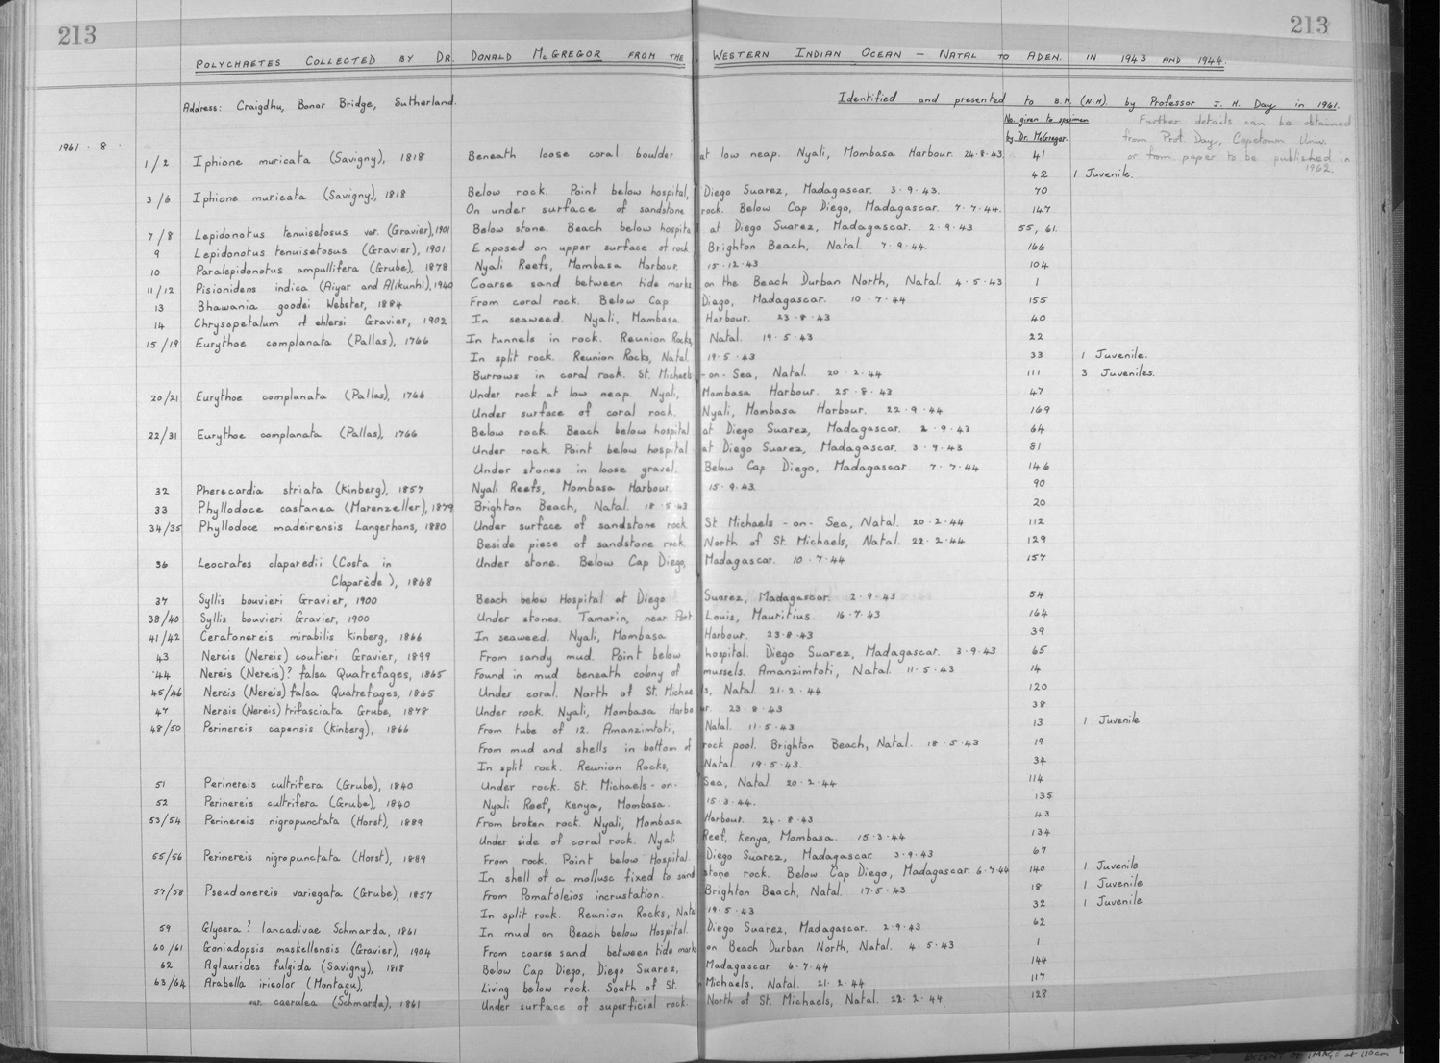 213 213
POLYCHAETES COLLECTED BY DR. DONALD McGREGOR FROM THE WESTERN INDIAN OCEAN - NATAL TO ADEN. IN 1943 AND 1944.
Address: Craigdhu, Bonar Bridge, Sutherland. Identified and presented to B.M. (N.H). by Professor J. H. Day in 1961.
No. given to specimen by Dr. McGregor.
Further details can be obtained
from Prof. Day, Capetown Univ.
or from paper to be published in
1962.
1961 . 8 .
1/2 Iphione muricata (Savigny), 1818 Beneath loose coral boulder at low neap. Nyali, Mombasa Harbour. 24.8.43. 41
42 1 Juvenile.
3/6 Iphione muricata (Savigny), 1818 Below rock. Point below hospital, Diego Suarez, Madagascar. 3.9.43. 70
On under surface of sandstone rock. Below Cap Diego, Madagascar. 7.7.44. 147
7/8 Lepidonotus tenuisetosus var. (Gravier), 1901 Below stone. Beach below hospital at Diego Suarez, Madagascar. 2.9.43 55, 61.
9 Lepidonotus tenuisetosus (Gravier), 1901 Exposed on upper surface of rock Brighton Beach, Natal. 7.9.44. 166
10 Paralepidonotus ampullifera (Grube), 1878 Nyali Reefs, Mombasa Harbour. 15.12.43 104
11/12 Pisionidens indica (Aiyar and Alikunhi), 1940 Coarse sand between tide marks on the Beach Durban North, Natal. 4.5.43 1
13 Bhawania goodei Webster, 1884 From coral rock. Below Cap Diego, Madagascar. 10.7.44 155
14 Chrysopetalum cf ehlersi Gravier, 1902 In seaweed. Nyali, Mombasa Harbour. 23.8.43 40
15/19 Eurythoe complanata (Pallas), 1766 In tunnels in rock. Reunion Rocks, Natal. 19.5.43 22
In split rock. Reunion Rocks, Natal 19.5.43 33 1 Juvenile.
Burrows in coral rock. St. Michaels -on-Sea, Natal. 20.2.44 111 3 Juveniles.
20/21 Eurythoe complanata (Pallas), 1766 Under rock at low neap. Nyali, Mombasa Harbour. 25.8.43 47
Under surface of coral rock. Nyali, Mombasa Harbour. 22.9.44 169
22/31 Eurythoe complanata (Pallas), 1766 Below rock. Beach below hospital at Diego Suarez, Madagascar. 2.9.43 64
Under rock. Point below hospital at Diego Suarez, Madagascar. 3.9.43 81
Under stones in loose gravel. Below Cap Diego, Madagascar 7.7.44 146
32 Pherecardia striata (Kinberg), 1857 Nyali Reefs, Mombasa Harbour 15.9.43. 90
33 Phyllodoce castanea (Marenzeller), 1879 Brighton Beach, Natal. 18.5.43 20
34/35 Phyllodoce madeirensis Langerhans, 1880 Under surface of sandstone rock St Michaels-on-Sea, Natal. 20.2.44 112
Beside piece of sandstone rock. North of St. Michaels, Natal. 22.2.44 129
36 Leocrates claparedii (Costa in Under stone. Below Cap Diego, Madagascar. 10.7.44 157
Claparède), 1868
37 Syllis bouvieri Gravier, 1900 Beach below Hospital at Diego Suarez, Madagascar. 2.9.43 54
38/40 Syllis bouvieri Gravier, 1900 Under stones. Tamarin, near Port Louis, Mauritius 16.7.43 164
41/42 Ceratonereis mirabilis Kinberg, 1866 In seaweed. Nyali, Mombasa Harbour. 23.8.43 39
43 Nereis (Nereis) coutieri Gravier, 1899 From sandy mud. Point below hospital. Diego Suarez, Madagascar. 3.9.43 65
44 Nereis (Nereis)? falsa Quatrefages, 1865 Found in mud beneath colony of mussels. Amanzimtoti, Natal. 11.5.43 14
45/46 Nereis (Nereis) falsa Quatrefages, 1865 Under coral. North of St. Michaels, Natal 21.2.44 120
47 Nereis (Nereis) trifasciata Grube, 1878 Under rock. Nyali, Mombasa Harbour. 23.8.43 38
48/50 Perinereis capensis (Kinberg), 1866 From tube of 12. Amanzimtoti, Natal. 11.5.43 13 1 Juvenile
From mud and shells in bottom of rock pool. Brighton Beach, Natal. 18.5.43 19
In split rock. Reunion Rocks, Natal 19.5.43. 34
51 Perinereis cultrifera (Grube), 1840 Under rock. St. Michaels-on- Sea, Natal 20.2.44 114
52 Perinereis cultrifera (Grube), 1840 Nyali Reef, Kenya, Mombasa. 15.3.44. 135
53/54 Perinereis nigropunctata (Horst), 1889 From broken rock. Nyali, Mombasa Harbour. 24.8.43 43
Under side of coral rock. Nyali Reef, Kenya, Mombasa. 15.3.44 134
55/56 Perinereis nigropunctata (Horst), 1889 From rock. Point below Hospital. Diego Suarez, Madagascar 3.9.43 67
In shell of a mollusc fixed to sand stone rock. Below Cap Diego, Madagascar 6.7.44 140 1 Juvenile
57/58 Pseudonereis variegata (Grube), 1857 From Pomatoleios incrustation. Brighton Beach, Natal. 17.5.43 18 1 Juvenile
In split rock. Reunion Rocks, Natal 19.5.43 32 1 Juvenile
59 Glycera? lancadivae Schmarda, 1861 In mud on Beach below Hospital. Diego Suarez, Madagascar. 2.9.43 62
60/61 Goniadopsis maskellensis (Gravier), 1904 From coarse sand between tide marks on Beach Durban North, Natal. 4.5.43 1
62 Aglaurides fulgida (Savigny), 1818 Below Cap Diego, Diego Suarez, Madagascar 6.7.44 144
63/64 Arabella iricolor (Montagu), Living below rock. South of St. Michaels, Natal. 21.2.44 117
var. caerulea (Schmarda), 1861 Under surface of superficial rock. North of St. Michaels, Natal. 22.2.44 128